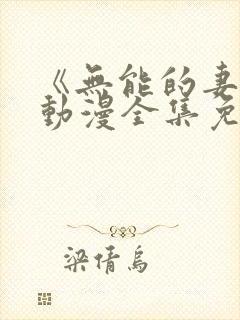 《無能的妻
動漫全集免
梁倩烏